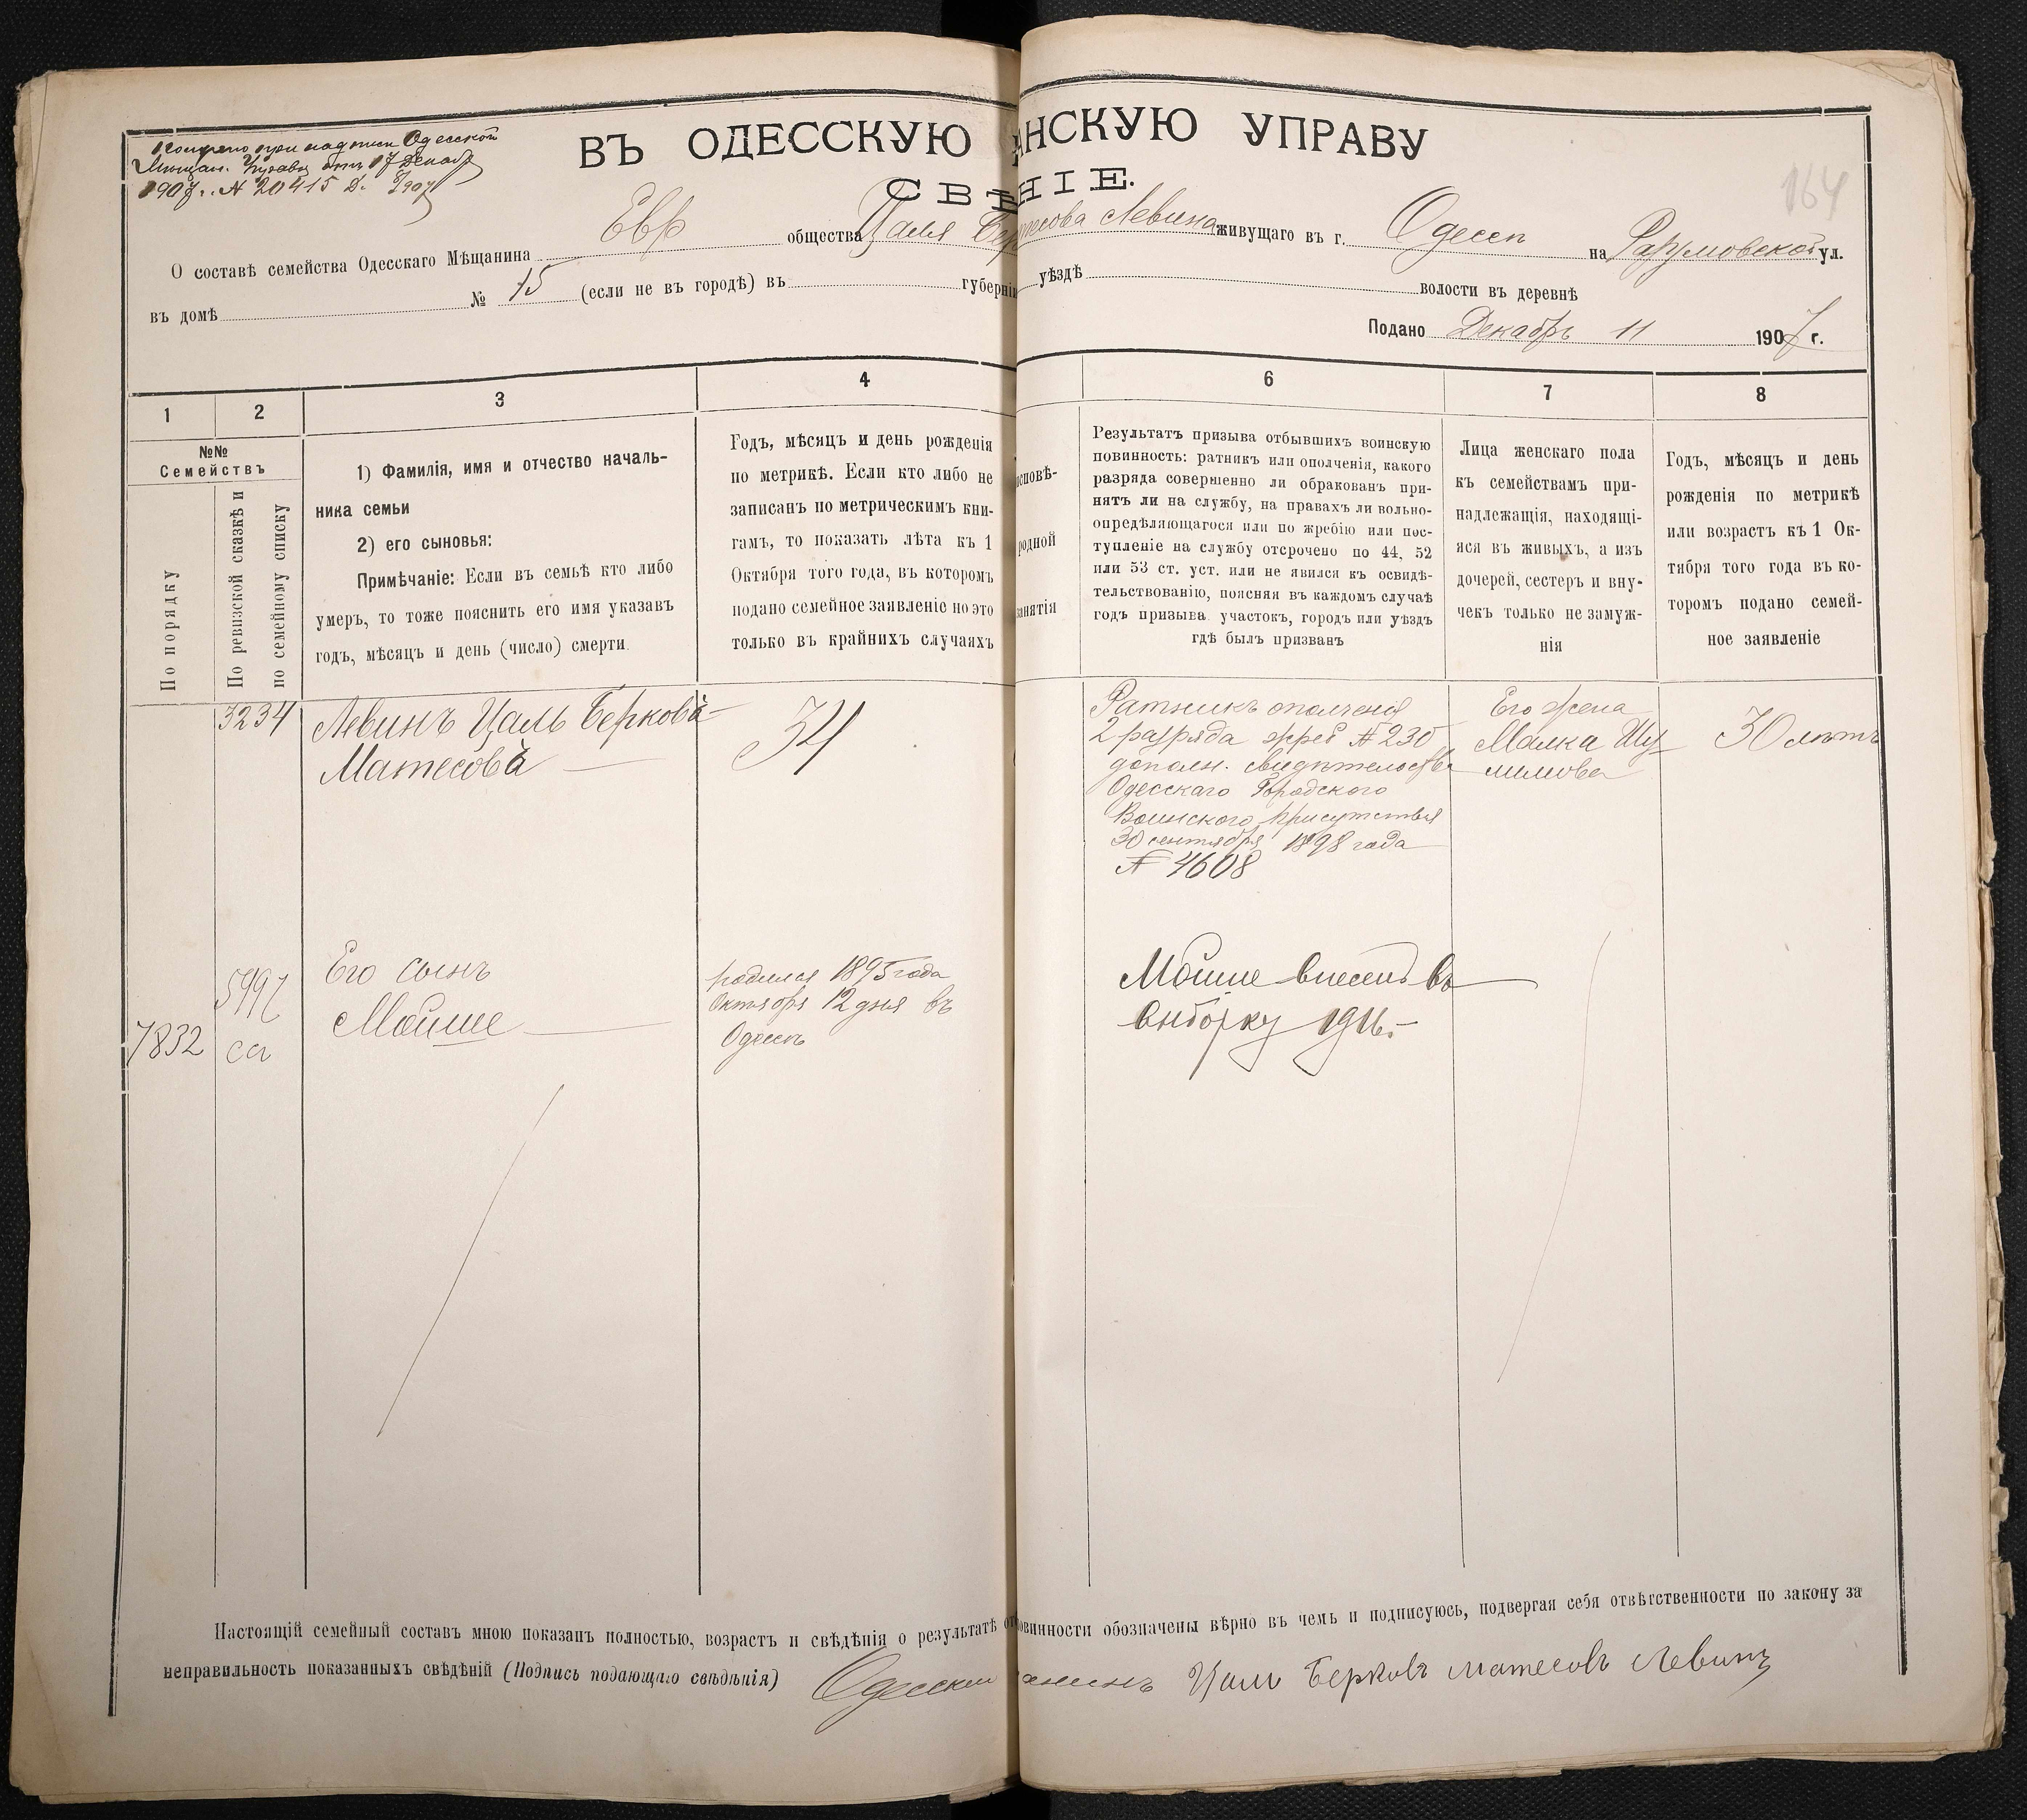 Одесской
Мѣщан. Управы отъ 17 Декабр
1907 г. № 20415 Д. 1907
164
ВЪ ОДЕССКУЮ АНСКУЮ УПРАВУ
СВѢ НІЕ.
О составѣ семейства Одесскаго Мѣщанина Евр общества Цаля Бер тесова Левина живущаго въ г. Одессѣ на Разумовской ул.
въ домѣ № 15 (если не въ городѣ) въ губерніи уѣздѣ волости въ деревнѣ
Подано Декабрь 11 1907 г.
1 2 3 4 6 7 8
№№
Семействъ
По порядку
По ревизской сказкѣ и
по семейному списку
1) Фамилія, имя и отчество началь-
ника семьи
2) его сыновья:
Примѣчаніе: Если въ семьѣ кто либо
умеръ, то тоже пояснить его имя указавъ
годъ, мѣсяцъ и день (число) смерти.
Годъ, мѣсяцъ и день рожденія
по метрикѣ. Если кто либо не
записанъ по метрическимъ кни-
гамъ, то показать лѣта къ 1
Октября того года, въ которомъ
подано семейное заявленіе но это
только въ крайнихъ случаяхъ
исповѣ-
родной
занятія
Результатъ призыва отбывшихъ воинскую
повинность: ратникъ или ополченія, какого
разряда совершенно ли обракованъ при-
нятъ ли на службу, на правахъ ли вольно-
опредѣляющагося или по жребію или пос-
тупленіе на службу отсрочено по 44, 52
или 53 ст. уст. или не явился къ освидѣ-
тельствованію, поясняя въ каждомъ случаѣ
годъ призыва участокъ, городъ или уѣздъ
гдѣ былъ призванъ
Лица женскаго пола
къ семействамъ при-
надлежащія, находящі-
яся въ живыхъ, а изъ
дочерей, сестеръ и вну-
чекъ только не замуж-
нія
Годъ, мѣсяцъ и день
рожденія по метрикѣ
или возрастъ къ 1 Ок-
тября того года въ ко-
торомъ подано семей-
ное заявленіе
3234
Левинъ Цаль Берковъ
Матесовъ
34
Ратникъ ополченія
2 разряда жреб № 230
дополн. свидѣтельства
Одесскаго Городского
Воинского присутствья
30 сентября 1898 года
№ 4608
Его жена
Малка Шу
лимова
30 лѣтъ
7832
5997
сп
Его сынъ
Мойше
родился 1895 года
Октября 12 дня въ
Одессѣ
Мойше внесенъ въ
выборку 1916.
Настоящій семейный составъ мною показанъ полностью, возрастъ и свѣдѣнія о результатѣ от овинности обозначены вѣрно въ чемъ и подписуюсь, подвергая себя отвѣтственности по закону за
неправильность показанныхъ свѣдѣній (Подпись подающаго свѣдѣнія) Одесскій анинъ Цаль Берковъ Матесовъ Левинъ